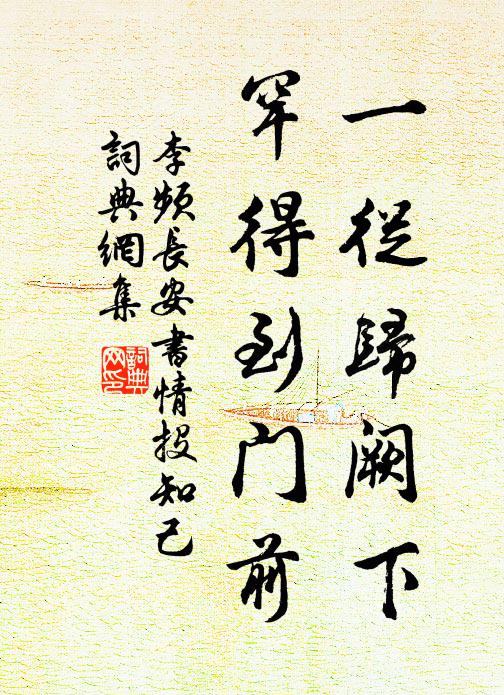 一從歸闕下
罕得到門前
李頻長安書情投知己
詞典網集
詞典網印